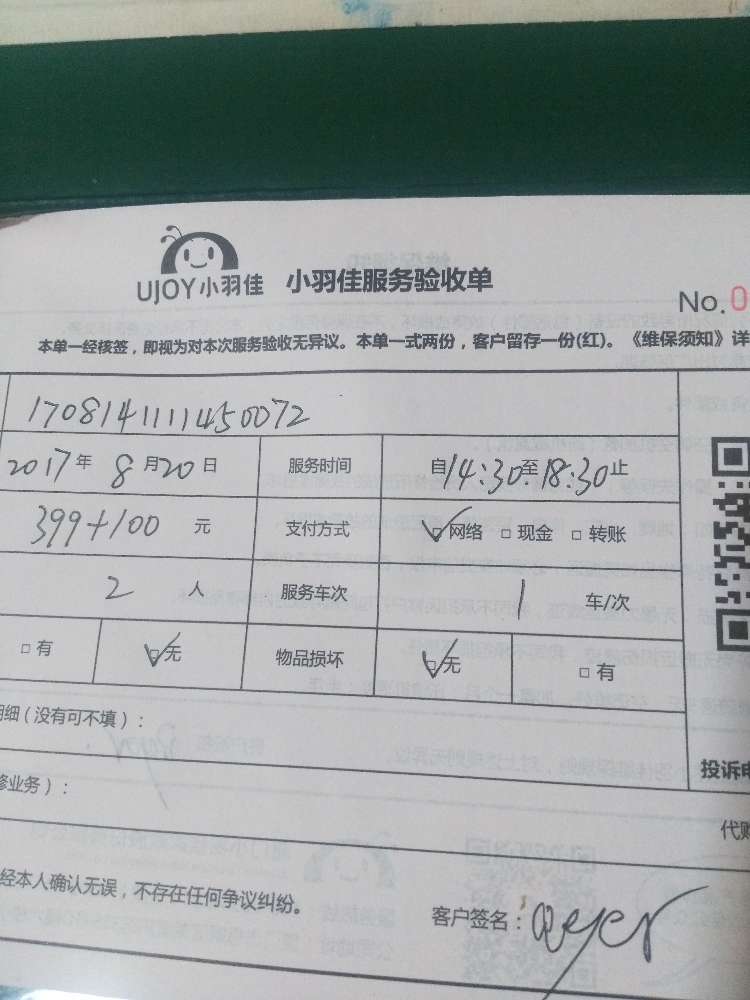 UJOY小羽佳 小羽佳服务验收单
No.0
本单一经核签，即视为对本次服务验收无异议。本单一式两份，客户留存一份(红)。《维保须知》详
1708141111450072
2017年 8月20日 服务时间 自14:30至18:30止
399+100 元 支付方式 ☑网络 □现金 □转账
2 人 服务车次 1 车/次
□有 ☑无 物品损坏 ☑无 □有
明细(没有可不填)：
投诉电
修业务)：
代购
经本人确认无误，不存在任何争议纠纷。
客户签名：